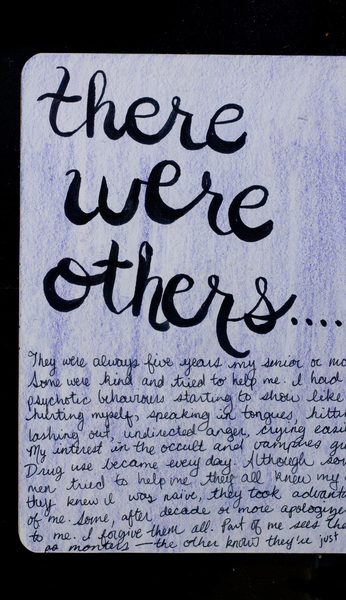 there
were
others....
They were always five years my senior or mo
Some were kind and tried to help me. I had
psychotic behaviours starting to show like
hurting myself, speaking in tongues, hitti
lashing out, undirected anger, crying easi
My interest in the occult and vampires gr
Drug use became every day. Although som
men tried to help me, they all knew my
they knew I was naive, they took advanta
of me. Some, after decade or more apologize
to me. I forgive them all. Part of me sees the
as monters — the other knows they're just